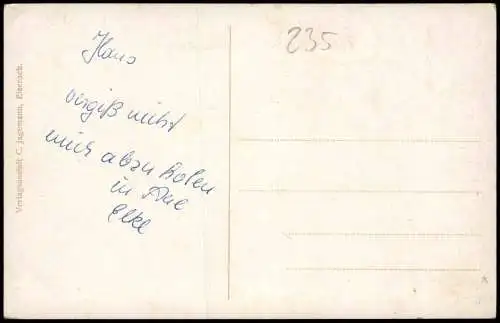 Verlagsanstalt C. Jagemann, Eisenach.
Hans
vergiß nicht
mich abzuholen
in Aue
Elke
235